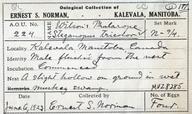 Oological Collection of
ERNEST S. NORMAN, KALEVALA, MANITOBA.
A.O.U. No. Name Wilson's Phalarope Set Mark
224. Steganopus tricolor N-2/4
Locality Kalevala Manitoba Canada
Identity Male flushed from the nest
Incubation Commenced
Nest A slight hollow on ground in wet
muskeg
Date Collector No. of Eggs
June 6, 1923 Ernest S. Norman Four.